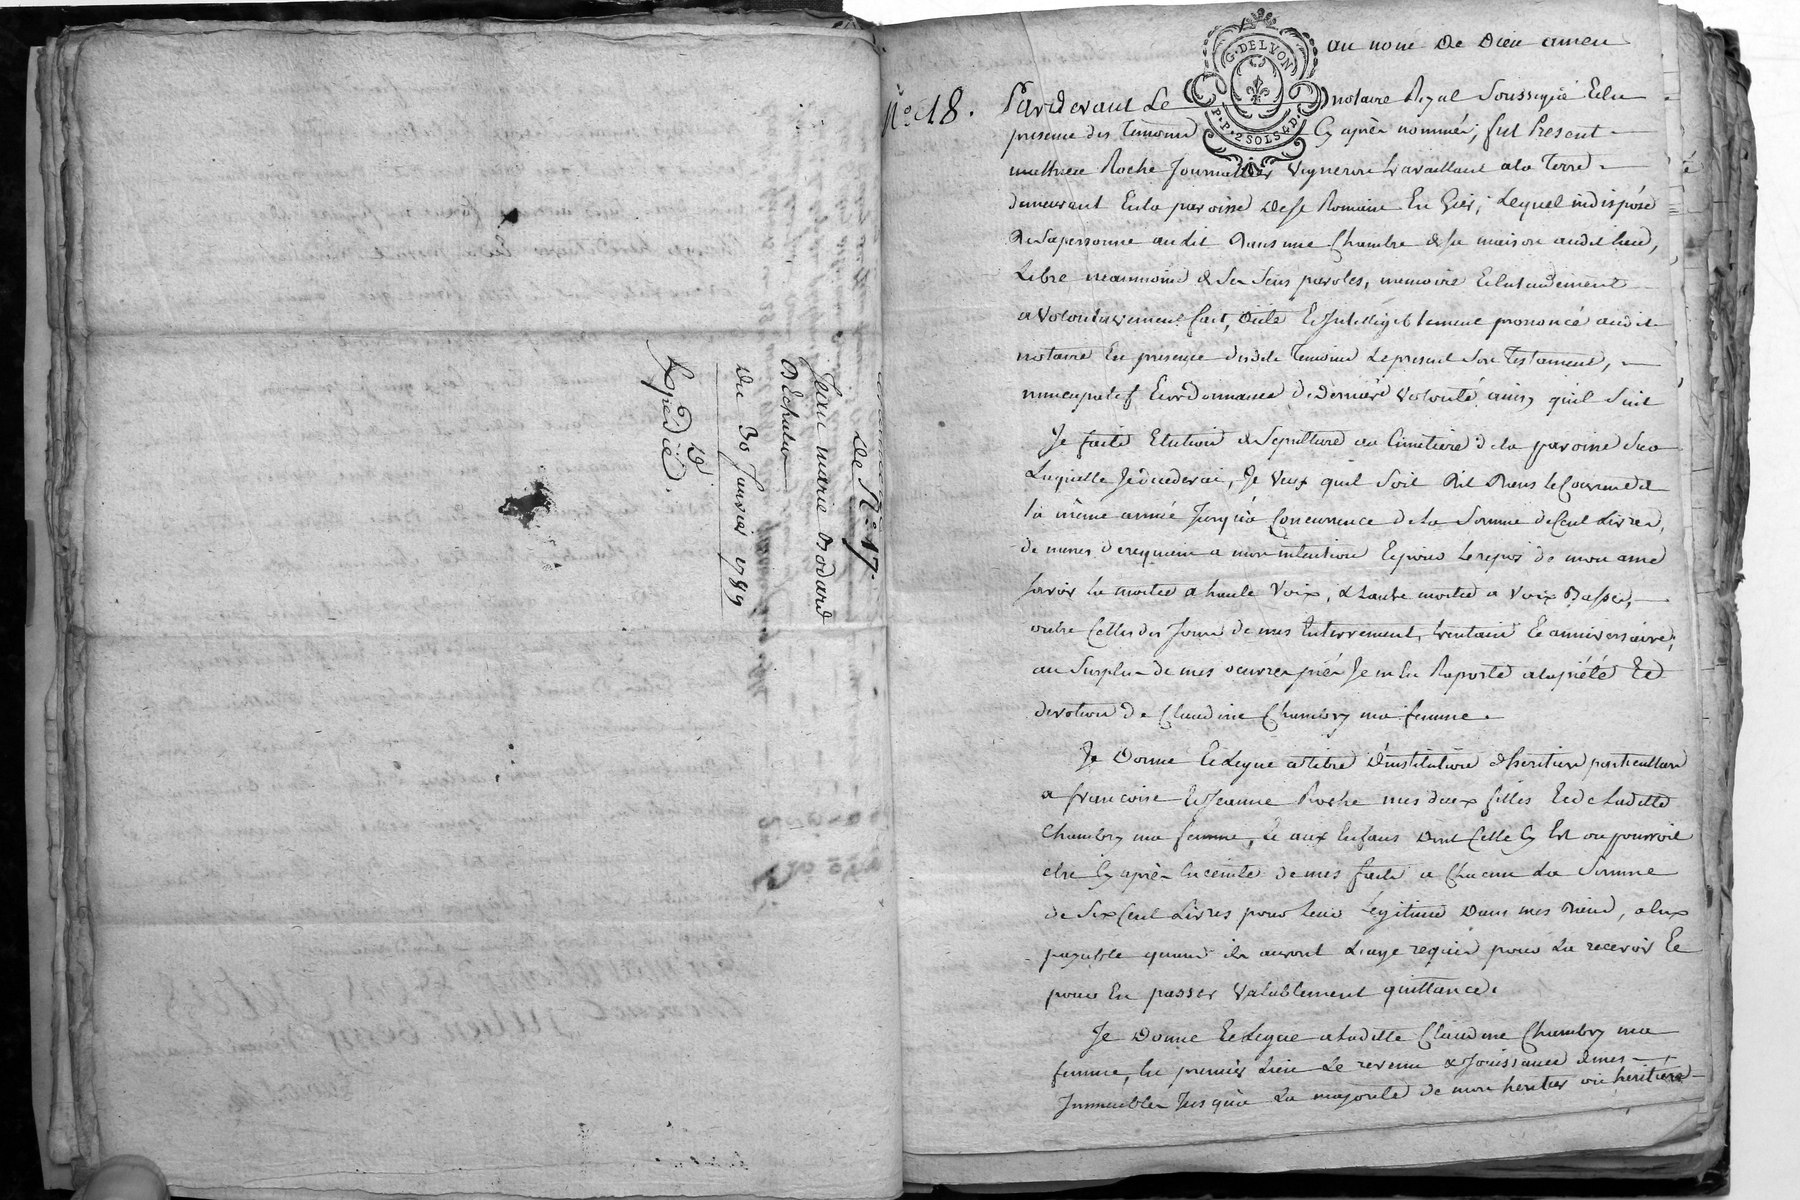 de N.º 17.
Jean marie Bodard
D'Echalas
Du 30 Janvier 1789
Expédié.
au nom De Dieu amen
N.º 18.
G. DE LYON
P.P. 2 SOLS 4 D.
Pardevant Le notaire Royal Soussigné Et en
presence des Temoins Cy après nommés, fut Present
Mathieu Roche Journallier Vigneron travaillant a la Terre
demeurant En la paroisse de St Romain En Gier, Lequel indisposé
De sa personne au Lit Dans une Chambre de sa maison audit Lieu,
Libre neanmoins de Ses Sens paroles, memoire Et Entendement
a Volontairement fait, Dicté Et Intelligiblement prononcé audit
notaire En presence desdits Temoins Le present Son Testament,
nuncupatif Et ordonnance de Derniere Volonté ainsy qu'il Suit
Je faits Election de Sepulture au Cimetiere de la paroisse Sur
Laquelle Je Decederai, Je Veux qu'il Soit Dit Dans le Courrant de
la même année Jusqu'a Concurrence de La Somme de Cent Livres,
de messes de requiem a mon intention Et pour Le repos de mon ame
Savoir La moitié a haute Voix, & L'autre moitié a Voix Basse,
outre Celles des Jours de mes Enterrement, trentain Et anniversaire;
au Surplus de mes oeuvres pies Je m'En Raporte a la piété Et
devotion de Claudine Chambry ma femme.
Je Donne Et Legue a titre D'institution d'heritiere particulliere
a francoise Et Jeanne Roche mes deux filles Et de Ladite
Chambry ma femme, Et aux Enfans Dont Celle Cy Est ou pourroit
etre Cy après Enceinte de mes faits a Chacun La Somme
de Six Cent Livres pour Leur Legitime Dans mes Biens, a Eux
payable quand ils auront L'age requis pour La recevoir Et
pour En passer Valablement quittance.
Je Donne Et Legue a Ladite Claudine Chambry ma
femme, En premier Lieu Le revenu & Jouissance de mes
Immeubles Jusqu'a La majorité de mon heritier ou heritiere